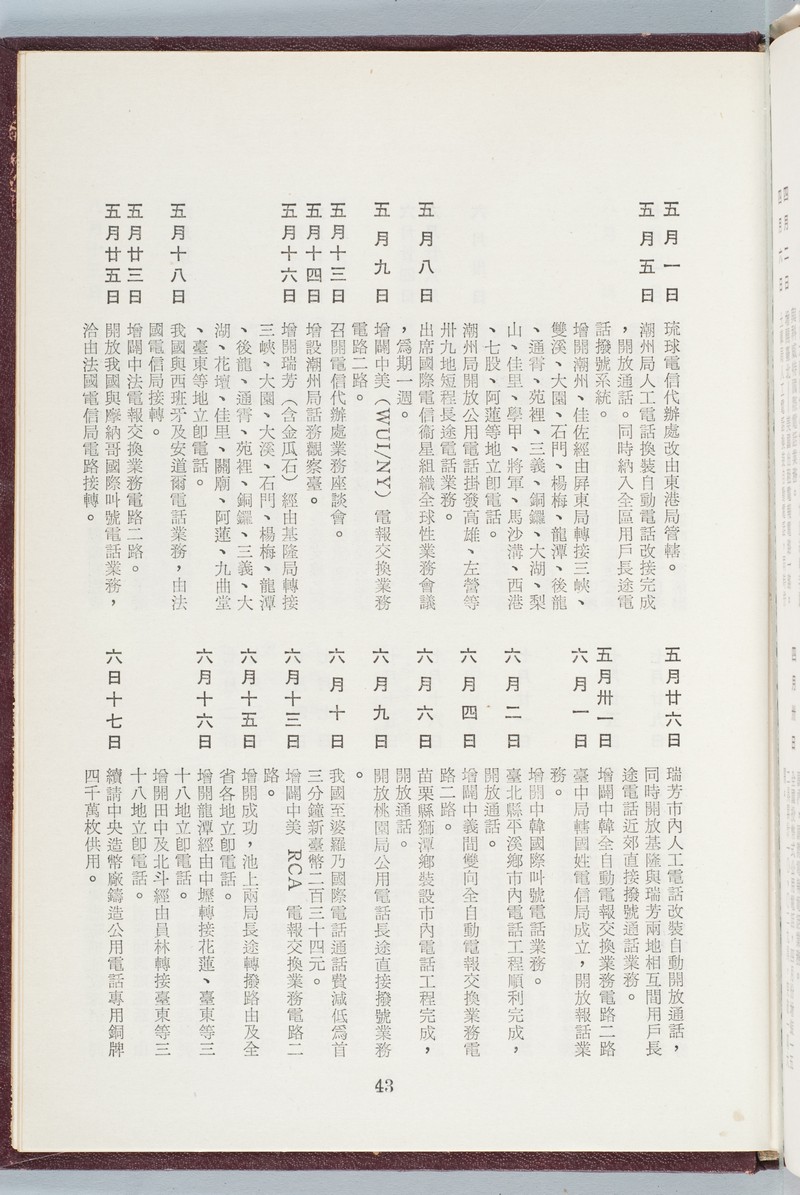 五月一日　琉球電信代辦處改由東港局管轄。
五月五日　潮州局人工電話換裝自動電話改接完成
，開放通話。同時納入全區用戶長途電
話撥號系統。
增開潮州、佳佐經由屏東局轉接三峽、
雙溪、大園、石門、楊梅、龍潭、後龍
、通霄、苑裡、三義、銅鑼、大湖、梨
山、佳里、學甲、將軍、馬沙溝、西港
、七股、阿蓮等地立卽電話。
潮州局開放公用電話掛發高雄、左營等
卅九地短程長途電話業務。
五月八日　出席國際電信衞星組織全球性業務會議
，爲期一週。
五月九日　增闢中美（WUI/NY）電報交換業務
電路二路。
五月十三日　召開電信代辦處業務座談會。
五月十四日　增設潮州局話務觀察臺。
五月十六日　增開瑞芳（含金瓜石）經由基隆局轉接
三峽、大園、大溪、石門、楊梅、龍潭
、後龍、通霄、苑裡、銅鑼、三義、大
湖、花壇、佳里、關廟、阿蓮、九曲堂
、臺東等地立卽電話。
五月十八日　我國與西班牙及安道爾電話業務，由法
國電信局接轉。
五月廿三日　增闢中法電報交換業務電路二路。
五月廿五日　開放我國與摩納哥國際叫號電話業務，
洽由法國電信局電路接轉。
五月廿六日　瑞芳市內人工電話改裝自動開放通話，
同時開放基隆與瑞芳兩地相互間用戶長
途電話近郊直接撥號通話業務。
五月卅一日　增闢中韓全自動電報交換業務電路二路
六月一日　臺中局轄國姓電信局成立，開放報話業
務。
增開中韓國際叫號電話業務。
六月二日　臺北縣平溪鄉市內電話工程順利完成，
開放通話。
六月四日　增闢中義間雙向全自動電報交換業務電
路二路。
六月六日　苗栗縣獅潭鄉裝設市內電話工程完成，
開放通話。
六月九日　開放桃園局公用電話長途直接撥號業務
。
六月十日　我國至婆羅乃國際電話通話費減低爲首
三分鐘新臺幣二百三十四元。
六月十三日　增闢中美 RCA 電報交換業務電路二
路。
六月十五日　增開成功，池上兩局長途轉撥路由及全
省各地立卽電話。
六月十六日　增開龍潭經由中壢轉接花蓮、臺東等三
十八地立卽電話。
增開田中及北斗經由員林轉接臺東等三
十八地立卽電話。
六日十七日　續請中央造幣廠鑄造公用電話專用銅牌
四千萬枚供用。
43